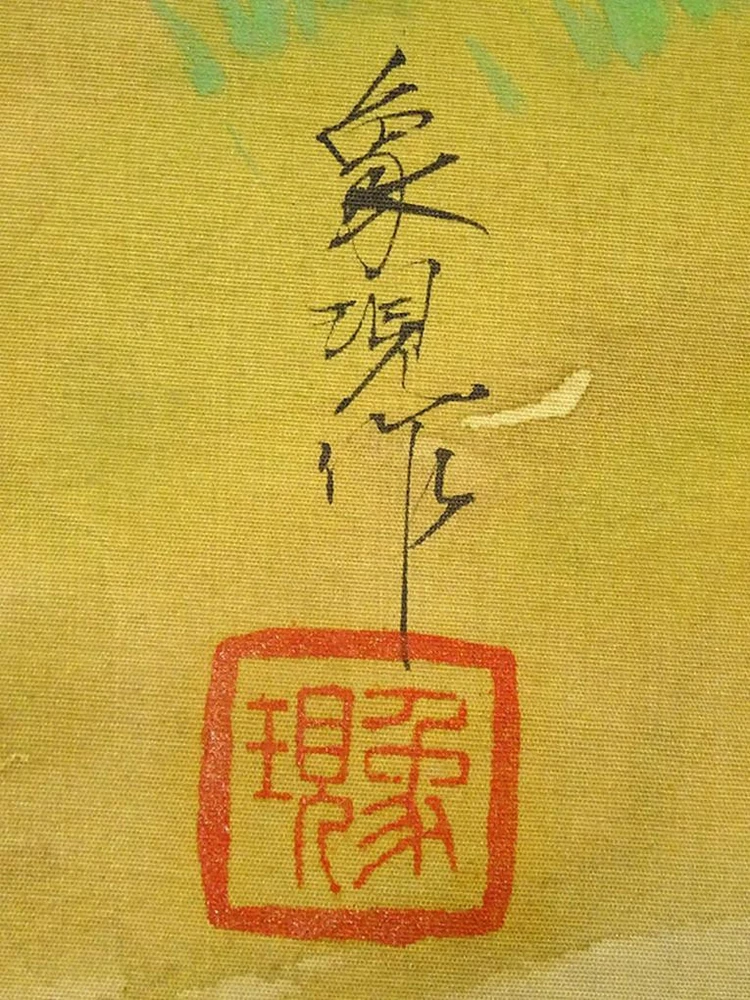 象現作
象現